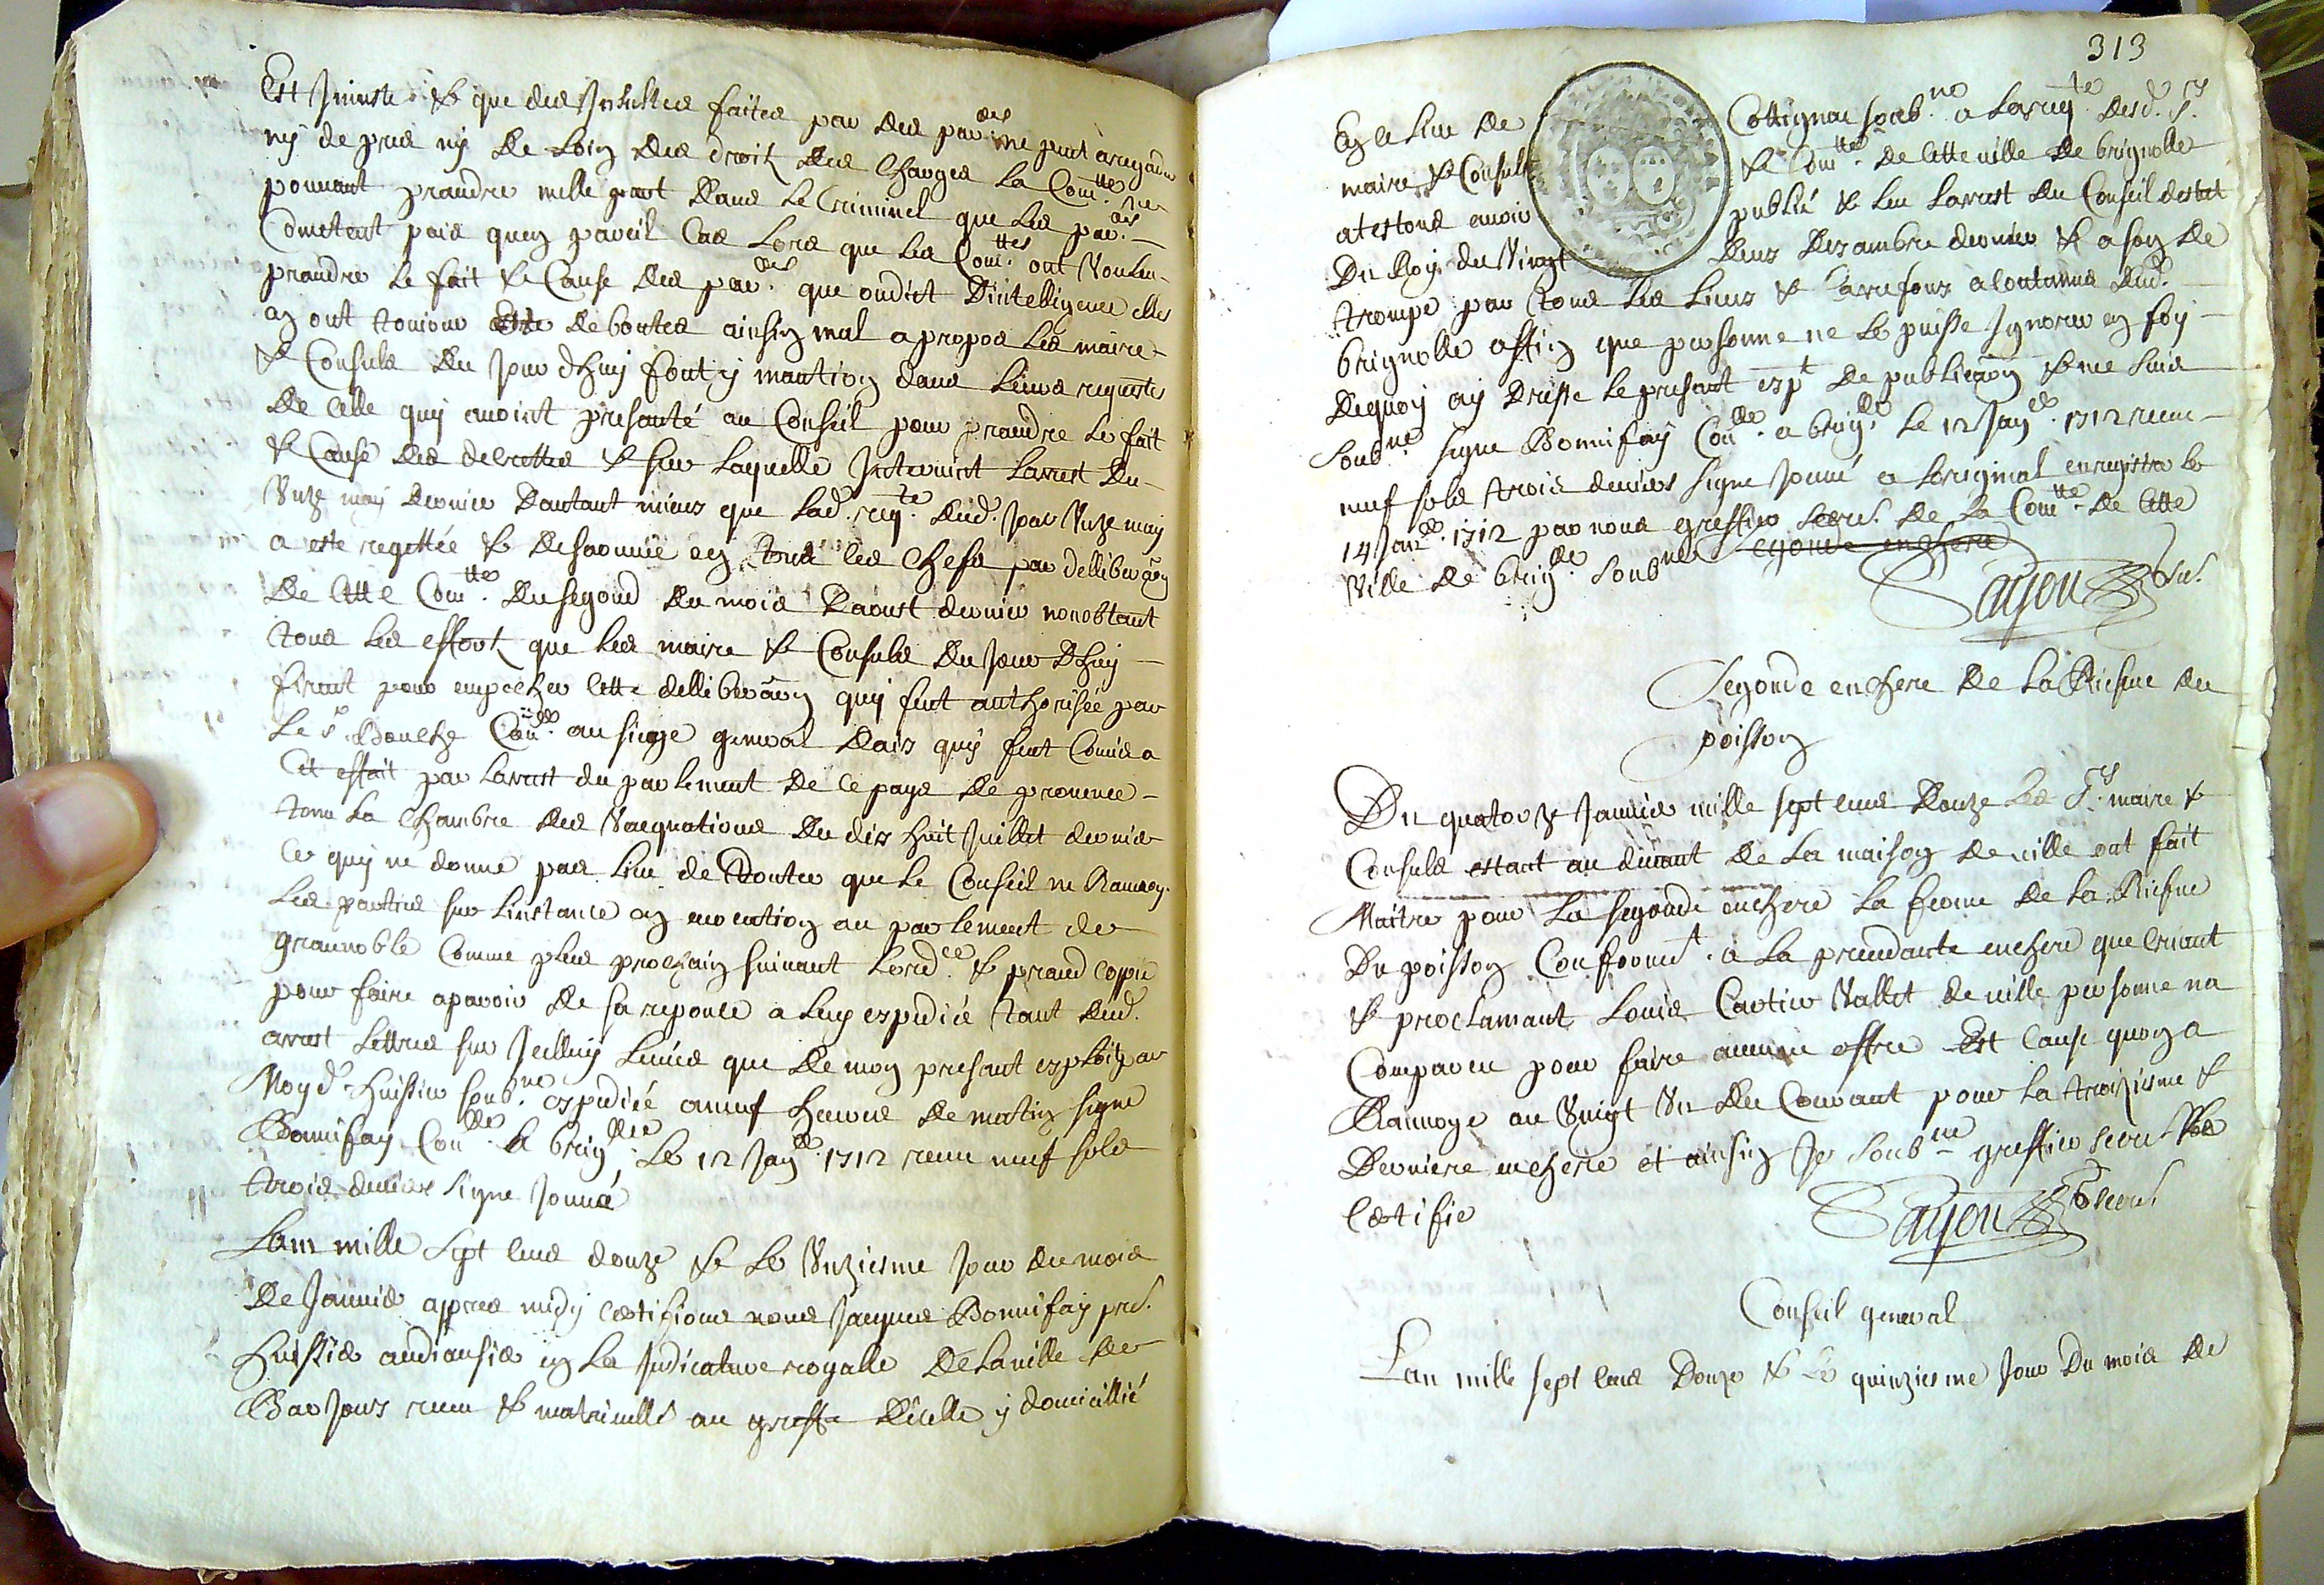 Est Injuste & que des Insultes faites par des par.ers ne peut aregarder
ny de pres ny de loing des droits des charges la Com.tté ne
pouvant prandre nulle part dans le Criminel que les par.ers
Cometent pais quen pareil Cas lors que les Com.ttes ont Vouleu
prandre le fait & Cause des par.ers que ondict Dintelligence elles
en ont toujour este deboutes ainsin mal a propos les maire
& Consuls du Jour dhuy font y mantion dans leurs requestes
de celle quy avoint presanté au Conseil pour prandre le fait
& Cause des debouttes & sur laquelle Intervint larrest du
Unze may dernier Dautant mieus que lad. req.te dud. Jour Unze may
a este regettée & desavouée en tous les chefs par delliberaõn
de cette Com.tté du segond du mois Daoust dernier nonobtant
tous les effortz que les maire & Consuls du Jour Dhuy
firent pour empecher cette delliberaõn quy fut authorisée par
le sr Bouche Con.er au siege general Daix quy fut Comis a
Cet effait par larrest du parlement de ce pays de provence
tenu la chambre des Vacquations du dix huit Juillet dernier
ce quy ne donne pas lieu de Douter que le Conseil ne Ranvoy
les parties sur linstance en evocation au parlement de
granoble Comme plus prochain suivant lord.ce & prand coppie
pour faire aparoir de sa reponce a luy expediée tant dud.
arrest lettres sur Icelluy levées que de mon presant exploit par
Moyd. huissier soub.né expediée aneuf heures de matin signe
Bonnifay Con.lle A brig.lle le 12 Jan.er 1712 receu neuf sols
trois deniers signe Jonné
Lan mille sept cens douze & le Unziesme Jour du mois
de Janvier appres midy certifions nous Jacques Bonnifay pre.r
huissier audiansier en la Judicature royalle de la ville de
BarJous receu & matriculle au greffe dicelle y domicillié
313
En ce lieu de Cottignac soub.né a la req.te desd. srs
maire & Consuls & Com.tté de cette ville de brignolle
atestons avoir publié & leu larrest du Conseil destat
Du Roy du Vingt Deus Desambre dernier & a son de
trompe par tous les lieux & Carrefours a coutumés dud.
brignolle affin que personne ne le puisse Ignorer en foy
Dequoy ay Dressé le presant exp.t de publicaõn & me suis
Soub.né signe Bonnifay Con.lle a brig.lle le 12 Jan.er 1712 receu
neuf sols trois deniers signe Jonné a loriginal enregistre le
14 Jan.er 1712 par nous greffier secre.re de la Com.tté de cette
Ville de brig.lle soub.né
Fayon secre.
Segonde enchere de la Riefve du
poisson
Du quatorze Janvier mille sept cens Douze les Srs maire &
Consuls estant au divant de la maison de ville ont fait
Maitre pour la segonde enchere la ferme de la Riefve
Du poisson Conformt. a la precedante enchere que criant
& proclamant Louis Cartier Vallet de ville personne na
Comparu pour faire aucune offre Est cause quon a
Ranvoye au Vingt Un du Courant pour la troiziesme &
Derniere enchere et ainsin Je soub.né greffier secre.re
Certifie
Fayon secre.
Conseil general
Lan mille sept cens Douze & le quinziesme Jour Du mois de